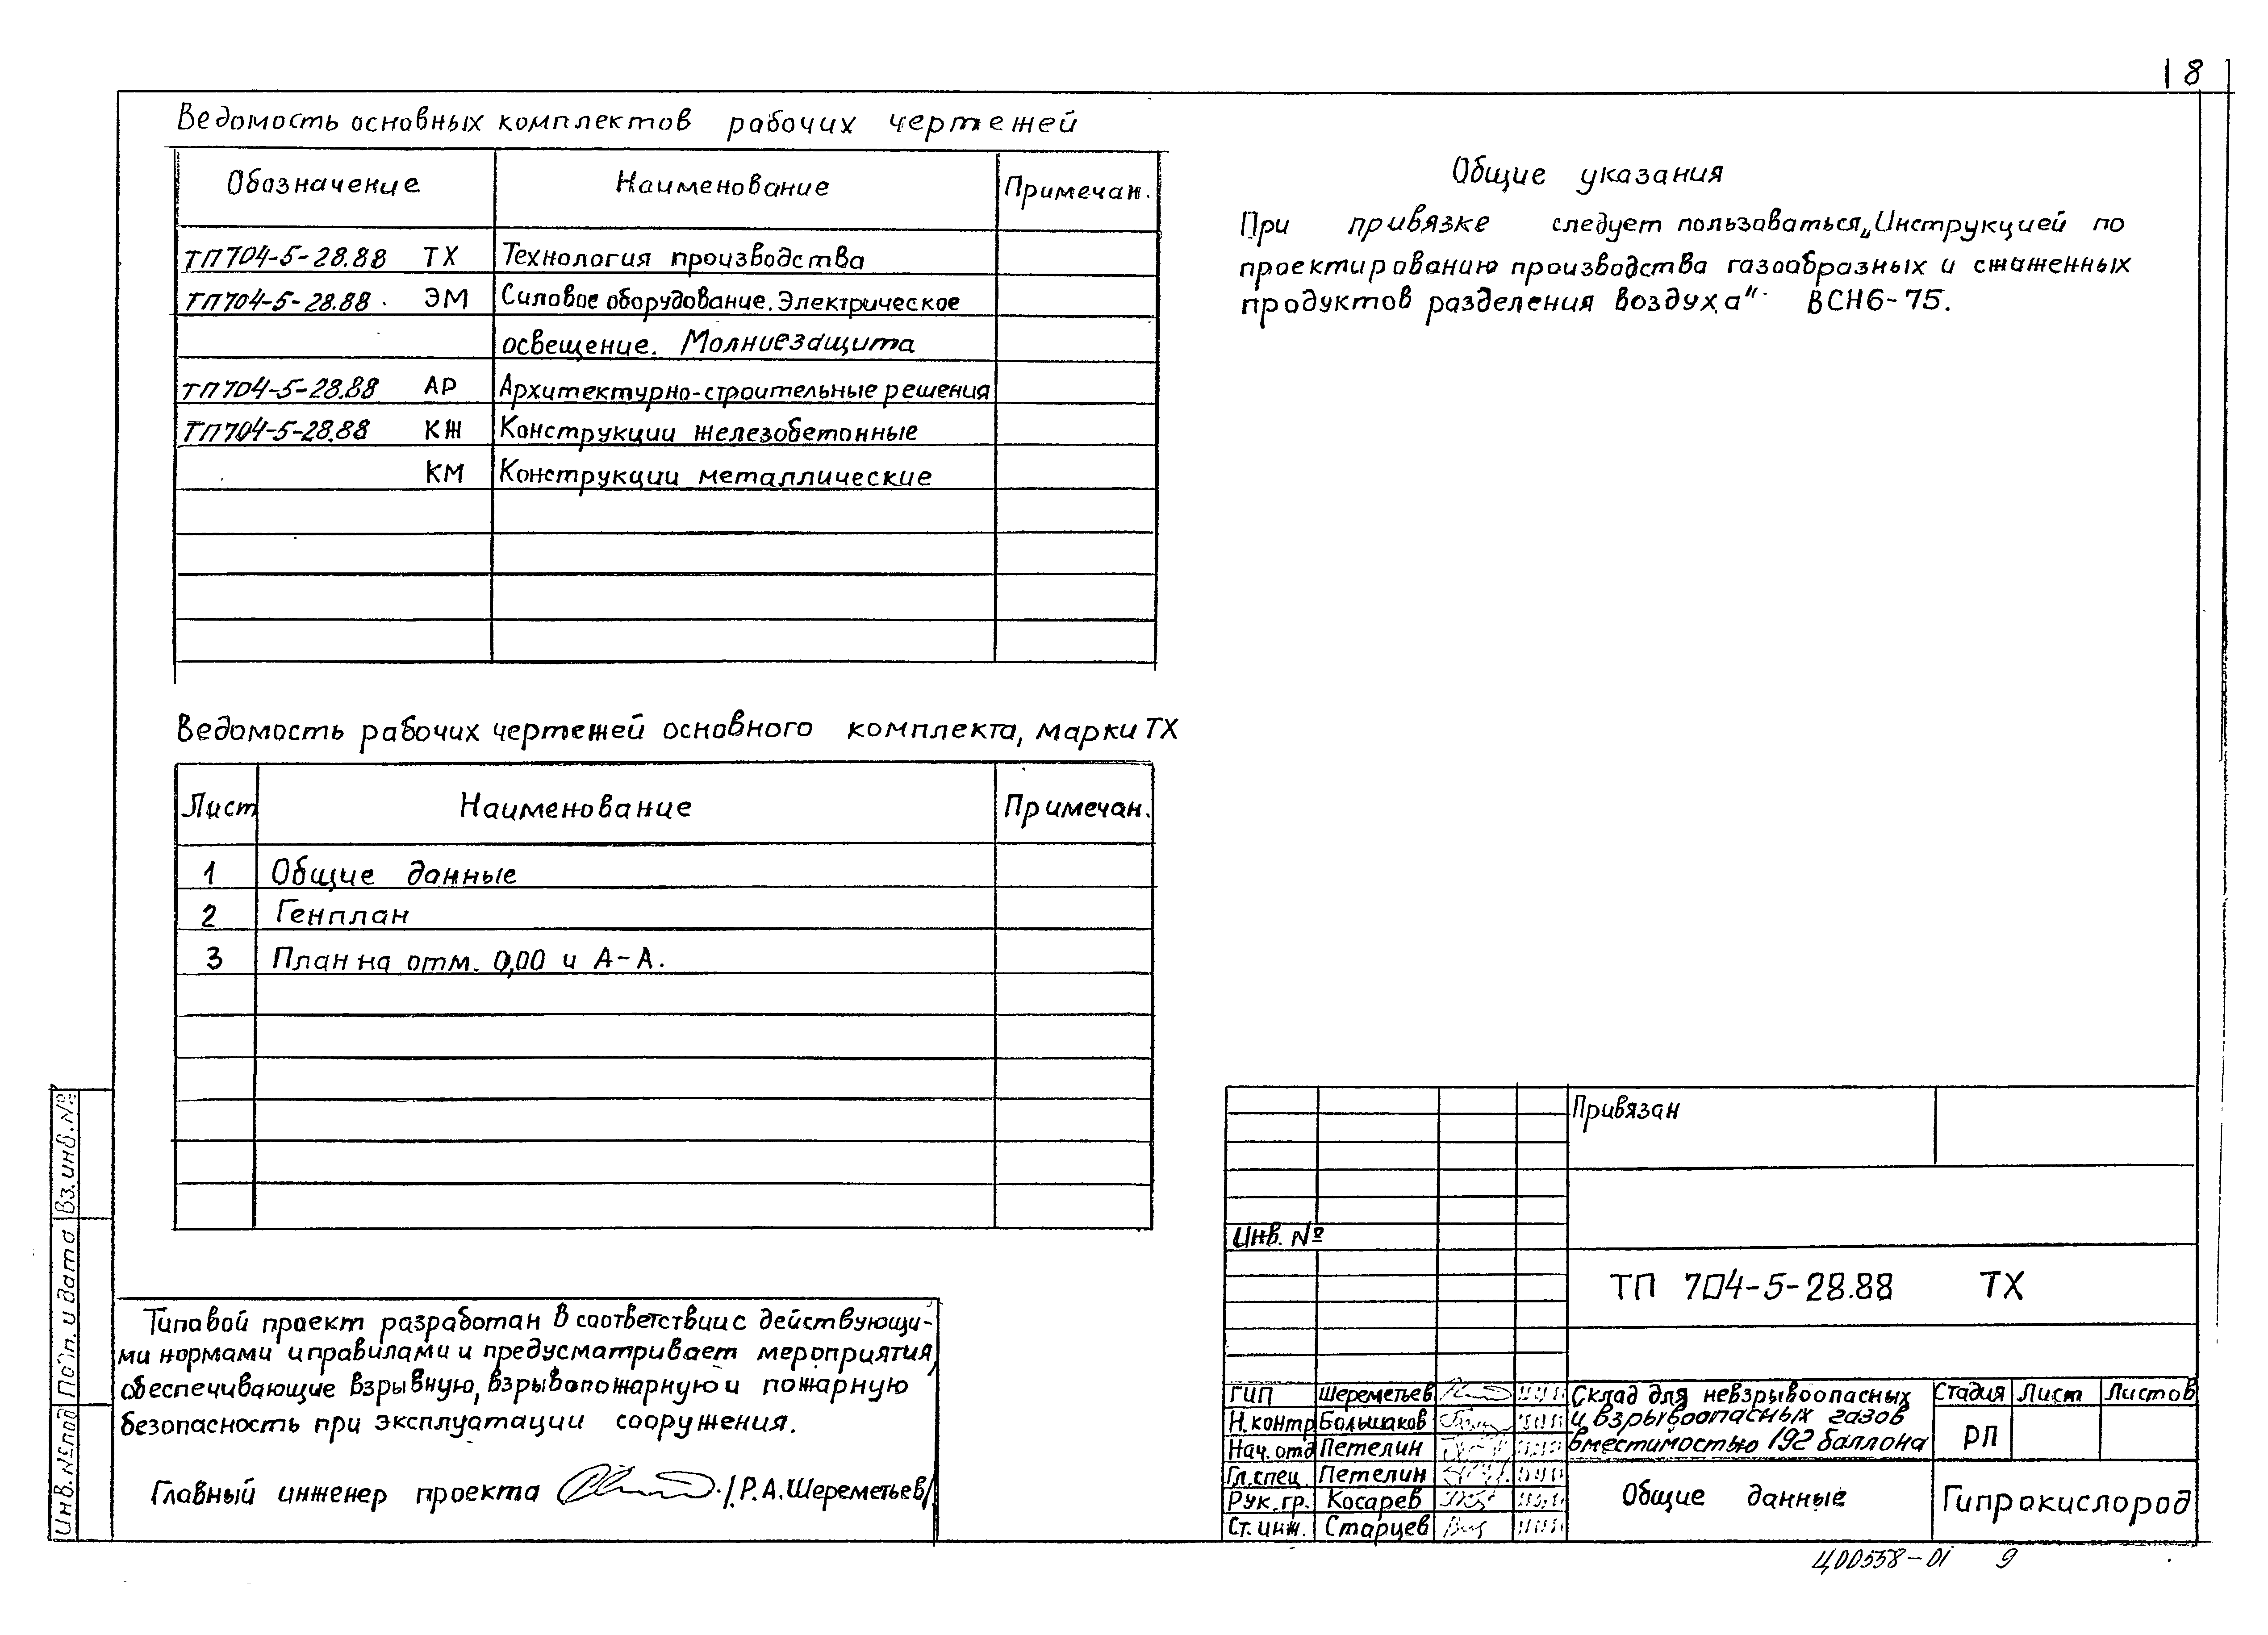 8
Ведомость основных комплектов рабочих чертежей
Обозначение Наименование Примечан.
ТП704-5-28.88 ТХ Технология производства
ТП704-5-28.88 ЭМ Силовое оборудование. Электрическое
освещение. Молниезащита
ТП704-5-28.88 АР Архитектурно-строительные решения
ТП704-5-28.88 КЖ Конструкции железобетонные
КМ Конструкции металлические
Общие указания
При привязке следует пользоваться „Инструкцией по
проектированию производства газообразных и сжиженных
продуктов разделения воздуха" ВСН6-75.
Ведомость рабочих чертежей основного комплекта, марки ТХ
Лист Наименование Примечан.
1 Общие данные
2 Генплан
3 План на отм. 0,00 и А-А.
Типовой проект разработан в соответствии с действующи-
ми нормами и правилами и предусматривает мероприятия,
обеспечивающие взрывную, взрывопожарную и пожарную
безопасность при эксплуатации сооружения.
Главный инженер проекта /Р.А.Шереметьев/
Инв.№подл Подп. и дата Вз.инв.№
Привязан
Инв. №
ТП 704-5-28.88 ТХ
ГИП Шереметьев
Н.контр Большаков
Нач.отд Петелин
Гл.спец. Петелин
Рук.гр. Косарев
Ст.инж. Старцев
Склад для невзрывоопасных
и взрывоопасных газов
вместимостью 192 баллона
Стадия Лист Листов
РП
Общие данные
Гипрокислород
Ц00558-01 9